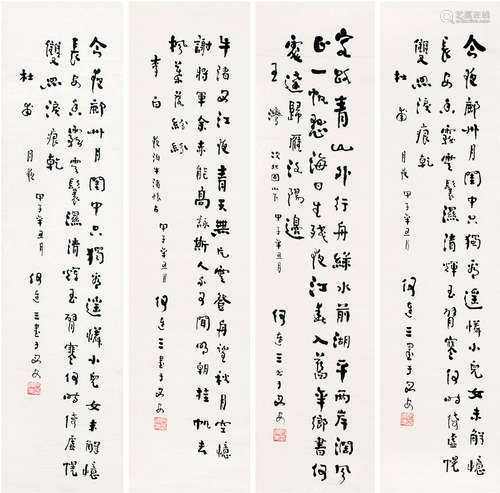 今夜鄜州月閨中只獨看遙憐小兒女未解憶
長安香霧雲鬟濕清輝玉臂寒何時倚虛幌
雙照淚痕乾
杜甫 月夜 甲子辛丑月 何 三 于西安
客路青山外行舟綠水前潮平兩岸闊風
正一帆懸海日生殘夜江春入舊年鄉書何
處達歸雁洛陽邊
王灣 次北固山下 甲子辛丑月 何 三 于西安
牛渚西江夜青天無片雲登舟望秋月空憶
謝將軍余亦能高詠斯人不可聞明朝挂帆去
楓葉落紛紛
李白 夜泊牛渚懷古 甲子辛丑月 何 三 于西安
今夜鄜州月閨中只獨看遙憐小兒女未解憶
長安香霧雲鬟濕清輝玉臂寒何時倚虛幌
雙照淚痕乾
杜甫 月夜 甲子辛丑月 何 三 于西安